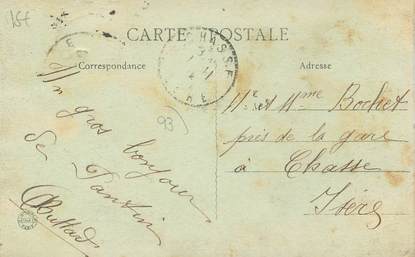 15f
CARTE POSTALE
Correspondance
Adresse
CHASSE
93
Un gros bonjour
de Pantin
Mr et Mme Bochet
près de la gare
à Chasse
Isère